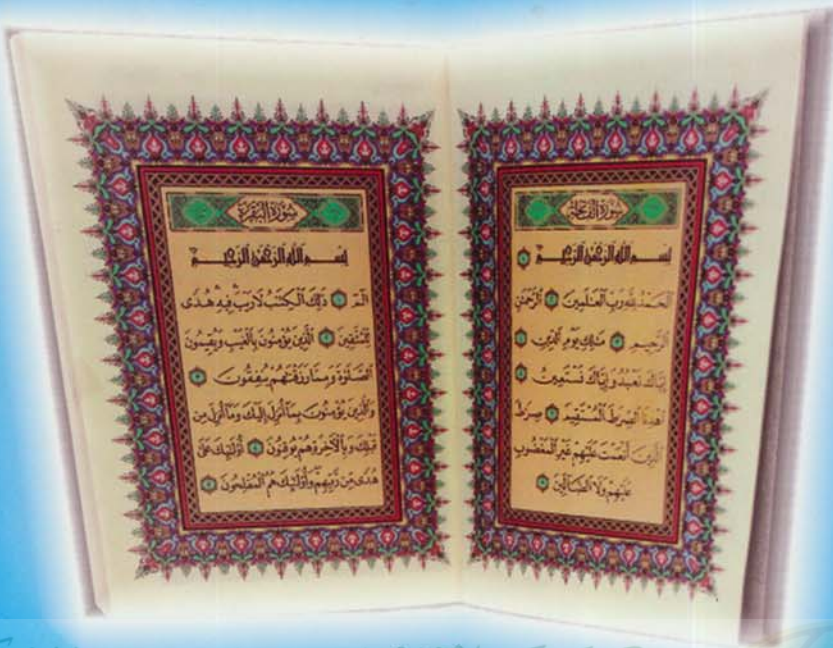 سُورَةُ الْفَاتِحَةِ
بِسْمِ اللَّهِ الرَّحْمَٰنِ الرَّحِيمِ ١
الْحَمْدُ لِلَّهِ رَبِّ الْعَالَمِينَ ٢ الرَّحْمَٰنِ
الرَّحِيمِ ٣ مَالِكِ يَوْمِ الدِّينِ ٤
إِيَّاكَ نَعْبُدُ وَإِيَّاكَ نَسْتَعِينُ ٥
اهْدِنَا الصِّرَاطَ الْمُسْتَقِيمَ ٦ صِرَاطَ
الَّذِينَ أَنْعَمْتَ عَلَيْهِمْ غَيْرِ الْمَغْضُوبِ
عَلَيْهِمْ وَلَا الضَّالِّينَ ٧
سُورَةُ الْبَقَرَةِ
بِسْمِ اللَّهِ الرَّحْمَٰنِ الرَّحِيمِ
الٓمٓ ١ ذَٰلِكَ الْكِتَابُ لَا رَيْبَ فِيهِ هُدًى
لِّلْمُتَّقِينَ ٢ الَّذِينَ يُؤْمِنُونَ بِالْغَيْبِ وَيُقِيمُونَ
الصَّلَوٰةَ وَمِمَّا رَزَقْنَاهُمْ يُنفِقُونَ ٣
وَالَّذِينَ يُؤْمِنُونَ بِمَا أُنزِلَ إِلَيْكَ وَمَا أُنزِلَ مِن
قَبْلِكَ وَبِالْآخِرَةِ هُمْ يُوقِنُونَ ٤ أُولَٰئِكَ عَلَىٰ
هُدًى مِّن رَّبِّهِمْ وَأُولَٰئِكَ هُمُ الْمُفْلِحُونَ ٥